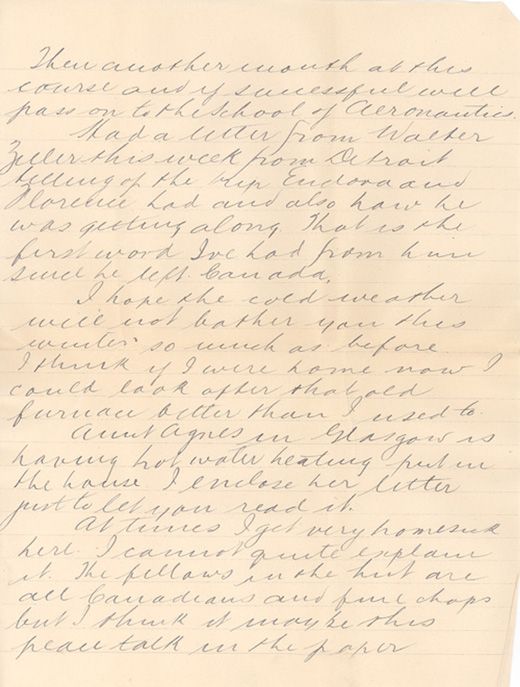 Then another month at this
course and if successful will
pass on to the School of Aeronautics.
Had a letter from Walter
Zeller this week from Detroit
telling of the trip Endora and
Florence had and also how he
was getting along. That is the
first word I've had from him
since he left Canada.
I hope the cold weather
will not bother you this
winter so much as before.
I think if I were home now I
could look after that old
furnace better than I used to.
Aunt Agnes in Glasgow is
having hot water heating put in
the house. I enclose her letter
just to let you read it.
At times I get very homesick
here. I cannot quite explain
it. The fellows in the hut are
all Canadians and fine chaps
but I think it maybe this
peace talk in the paper